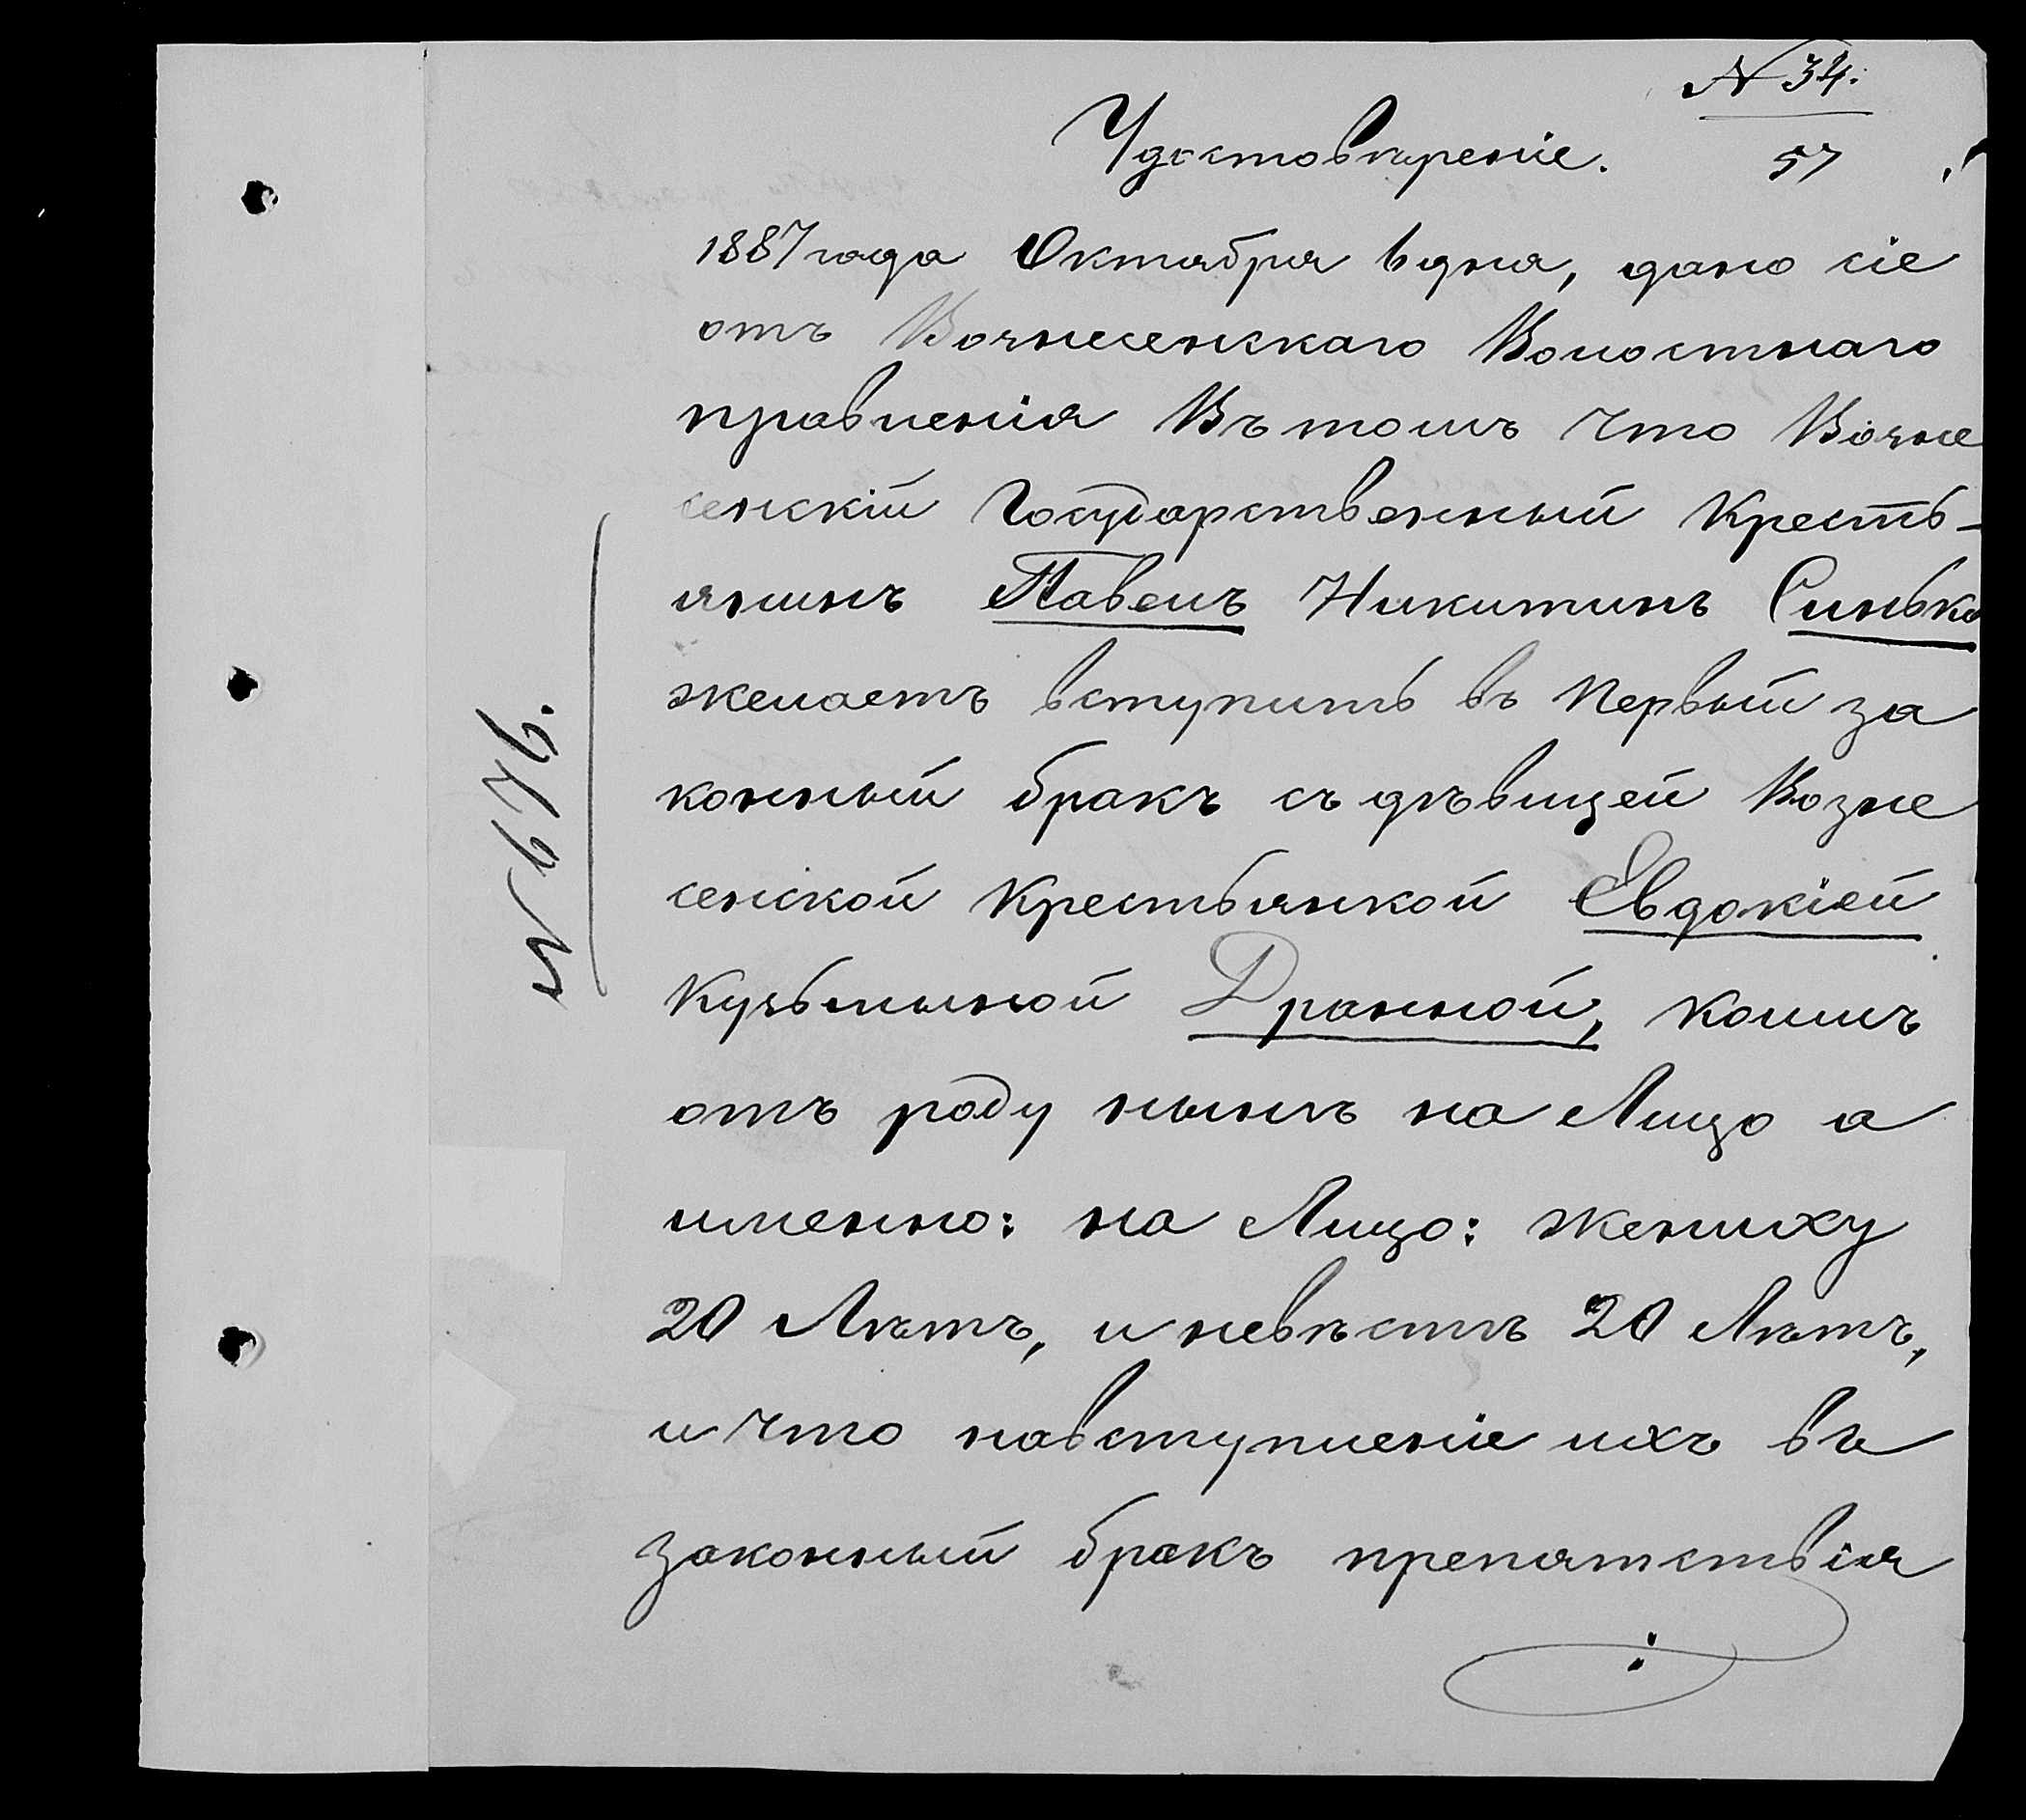 № 34.
57
Удостовѣреніе.
1887 года Октября 6 дня, дано сіе
отъ Вознесенскаго Волостнаго
правленія Въ томъ что Возне
сенскій Государственный Кресть-
янинъ Павелъ Никитинъ Синько
желаетъ вступить въ Первый за
конный бракъ съ дѣвицей Возне
сенской Крестьянкой Евдокіей
Кузьминой Дранной, коимъ
отъ роду нынѣ на Лицо а
именно: на Лицо: жениху
20 Лѣтъ, и невѣстѣ 20 Лѣтъ,
и что навступленіе ихъ въ
законный бракъ препятствія
№ 676.